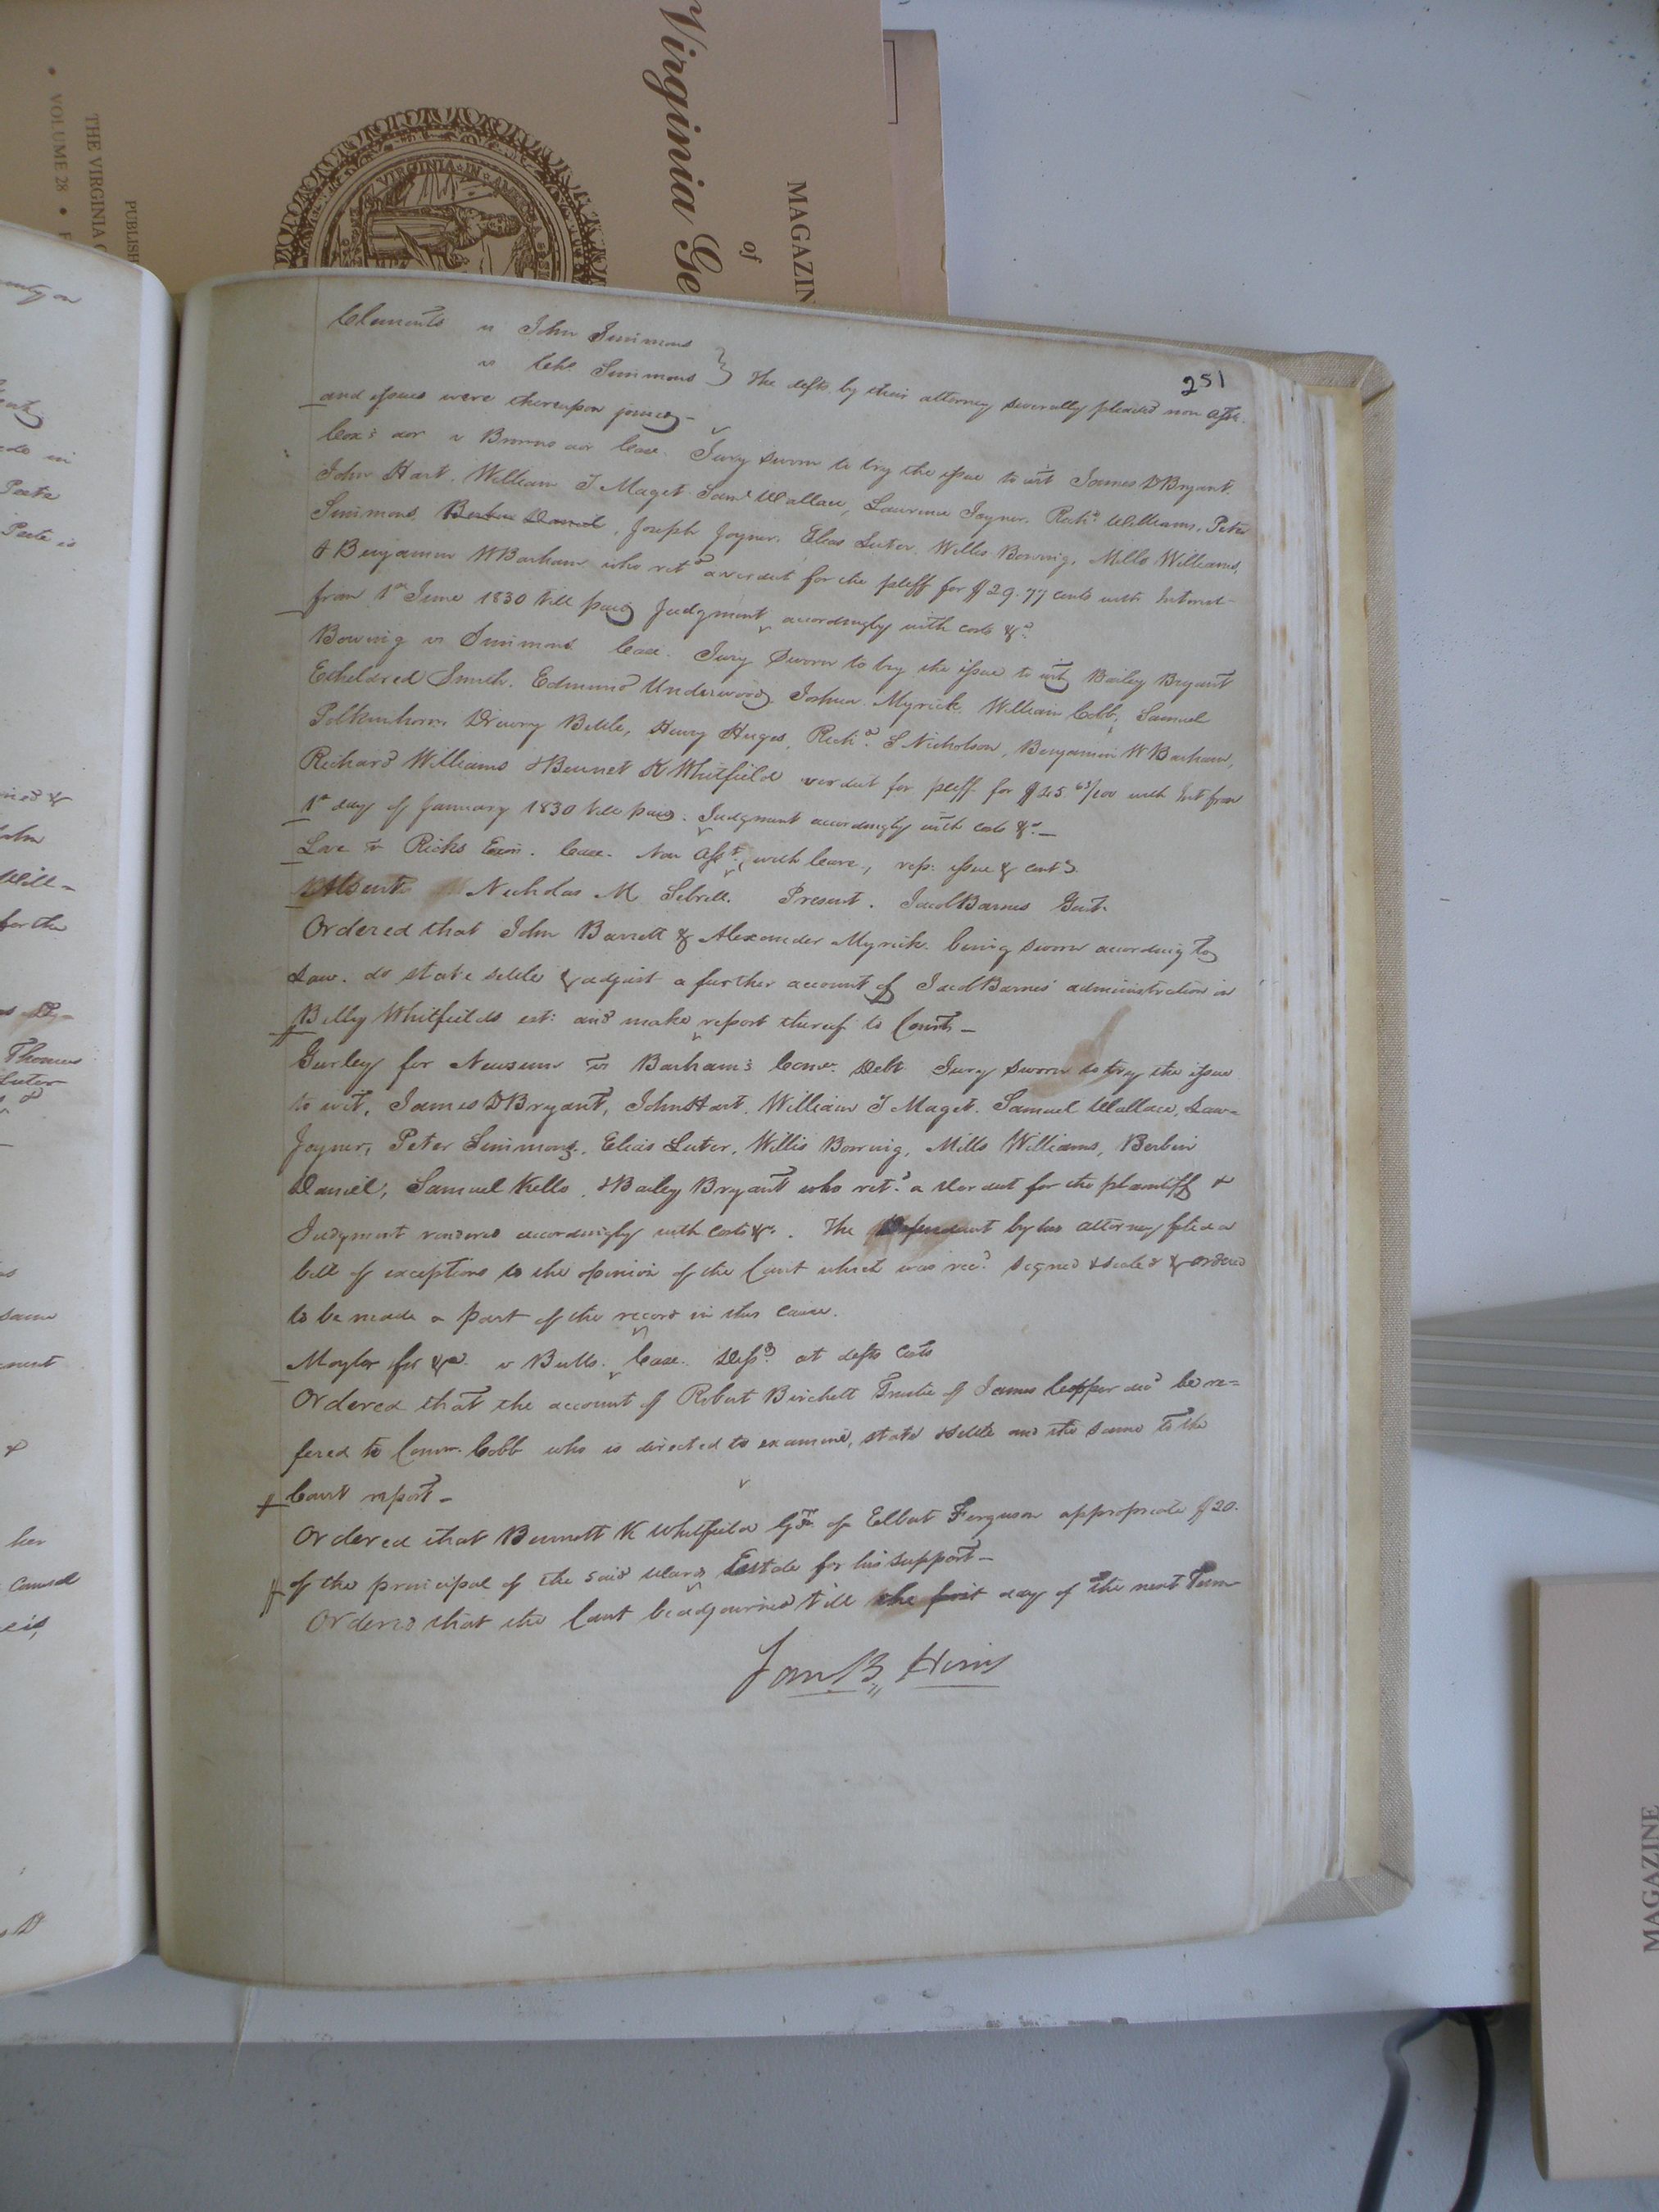 MAGAZIN
of
Virginia Ge
PUBLISH
THE VIRGINIA
VOLUME 28
VIRGINIA IN
251
Clements vs John Simmons
vs Simmons } The defts. by their attorney severally pleaded non asst.
and issues were thereupon joined
Cox's aor v Browns aor Case. Jury sworn to try the issue to wit James D Bryant.
John Hart. William T Maget. Saml Wallace, Laurence Joyner. Richd. Williams, Peter
Simmons, Joseph Joyner. Elias Luter. Willis Bowing, Mills Williams,
& Benjamin W Barham who retd a verdict for the pltff for $29.77 cents with Interest
from 1st June 1830 till paid Judgment accordingly with costs &c.
Bowing vs Simmons Case. Jury sworn to try the issue to wit Bailey Bryant
Etheldred Smith. Edmund Underwood, Joshua Myrick. William Cobb, Samuel
Polkinhorn Drewry Bittle, Henry Huges, Richd. S Nicholson, Benjamin W Barham,
Richard Williams & Bennet K Whitfield verdict for pltff. for $25.63/100 with Int from
1st day of January 1830 till paid. Judgment accordingly with costs &c. —
Love vs Ricks Exor. Case. Non Asst. with leave, rep: issue & contd.
Absent Nicholas M Sebrell. Present. Jacob Barnes Gent.
Ordered that John Barrett & Alexander Myrick. being sworn according to
Law. do state settle & adjust a further account of Jacob Barnes administration on
Billy Whitfields est: and make report thereof to Court —
Gurley for Newsum vs Barham's Debt Jury sworn to try the issue
to wit, James D Bryant, John Hart. William T Maget. Samuel Wallace, Law-
Joyner, Peter Simmons, Elias Luter, Willis Bowing, Mills Williams, Berlin
Daniel, Samuel Kello, & Bailey Bryant who retd. a Verdict for the plaintiff &
Judgment rendered accordingly with costs &c. The Defendant by his attorney filed a
bill of exceptions to the opinion of the Court which was recd. signed & sealed & ordered
to be made a part of the record in this cause.
Moyler for &c. v Butts. Case. Dis.d at defts Costs
Ordered that the account of Robert Birchett Trustee of James decd be re=
fered to Comr. Cobb who is directed to examine, state & settle and the same to the
Court report —
Ordered that Bennett K Whitfield Gdn. of Elbert Ferguson appropriate $20.
of the principal of the said Wards Estate for his support —
Ordered that the Court be adjourned till the first day of the next Term
MAGAZINE